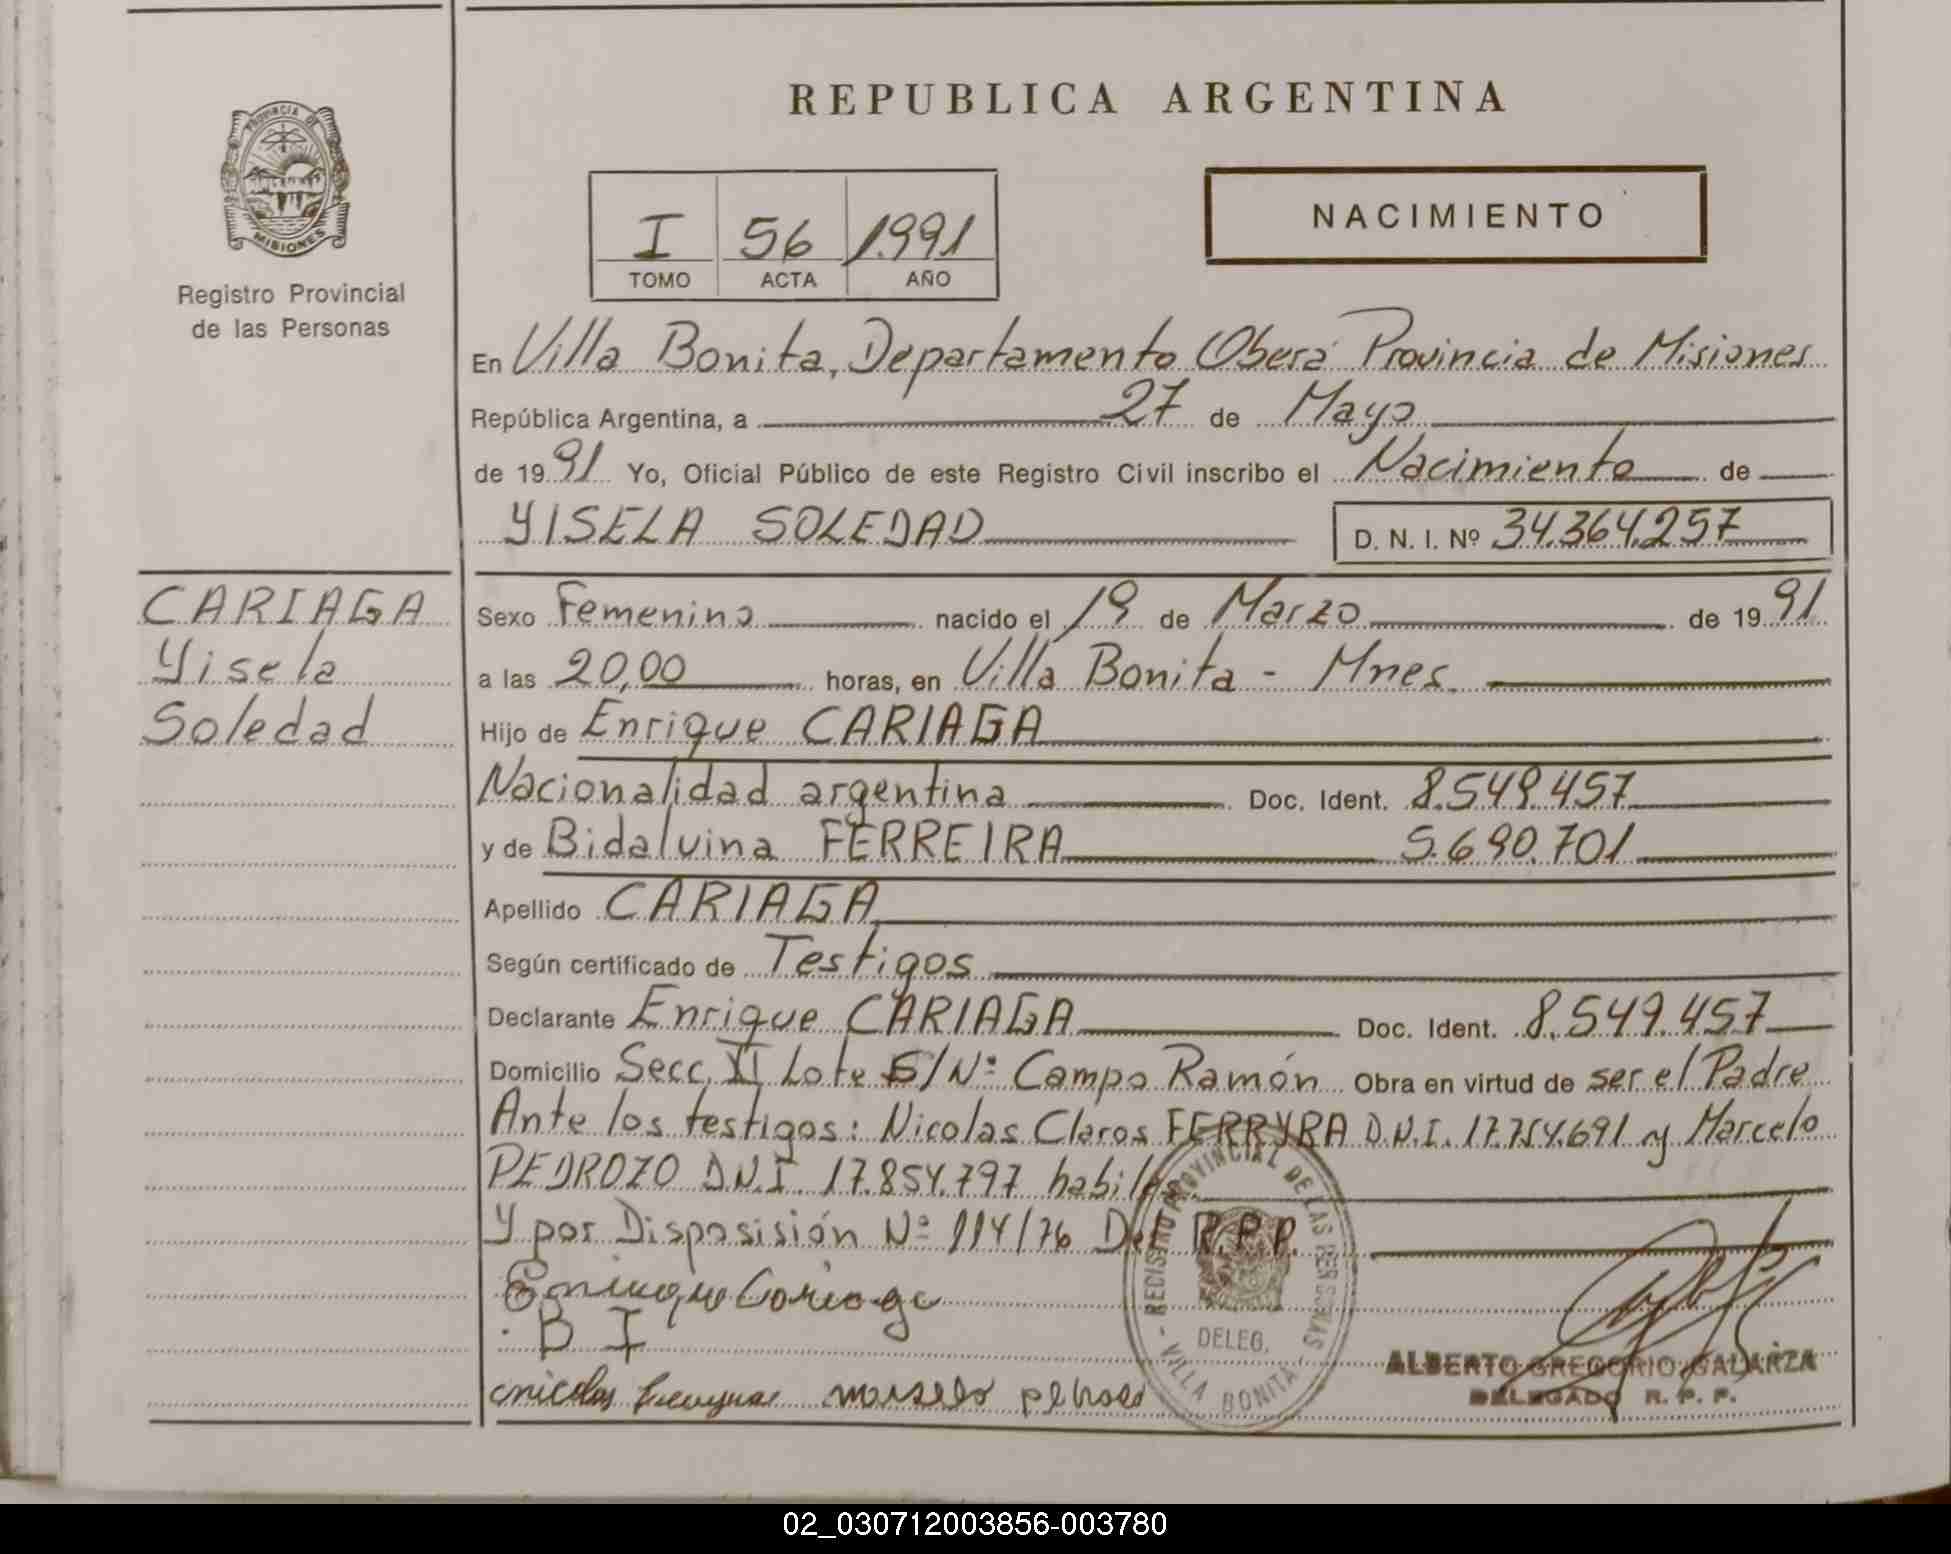 REPUBLICA ARGENTINA
PROVINCIA DE
MISIONES
Registro Provincial
de las Personas
I 56 1.991
TOMO ACTA AÑO
NACIMIENTO
En Villa Bonita, Departamento Oberá Provincia de Misiones
República Argentina, a 27 de Mayo
de 1991 Yo, Oficial Público de este Registro Civil inscribo el Nacimiento de
YISELA SOLEDAD D. N. I. Nº 34.364.257
CARIAGA
Yisela
Soledad
Sexo Femenino nacido el 19 de Marzo de 1991
a las 20,00 horas, en Villa Bonita - Mnes.
Hijo de Enrique CARIAGA
Nacionalidad argentina Doc. Ident. 8.549.457
y de Bidalvina FERREIRA 5.690.701
Apellido CARIAGA
Según certificado de Testigos
Declarante Enrique CARIAGA Doc. Ident. 8.549.457
Domicilio Secc. II Lote S/Nº Campo Ramón Obra en virtud de ser el Padre
Ante los testigos: Nicolas Claros FERRYRA D.N.I. 17.754.691 y Marcelo
PEDROZO D.N.I. 17.854.797 habiles
Y por Disposisión Nº 114/76 Del R.P.P.
Enrique Cariaga
B I
REGISTRO PROVINCIAL DE LAS PERSONAS
DELEG.
VILLA BONITA
ALBERTO GREGORIO GALARZA
DELEGADO R. P. P.
02_030712003856-003780